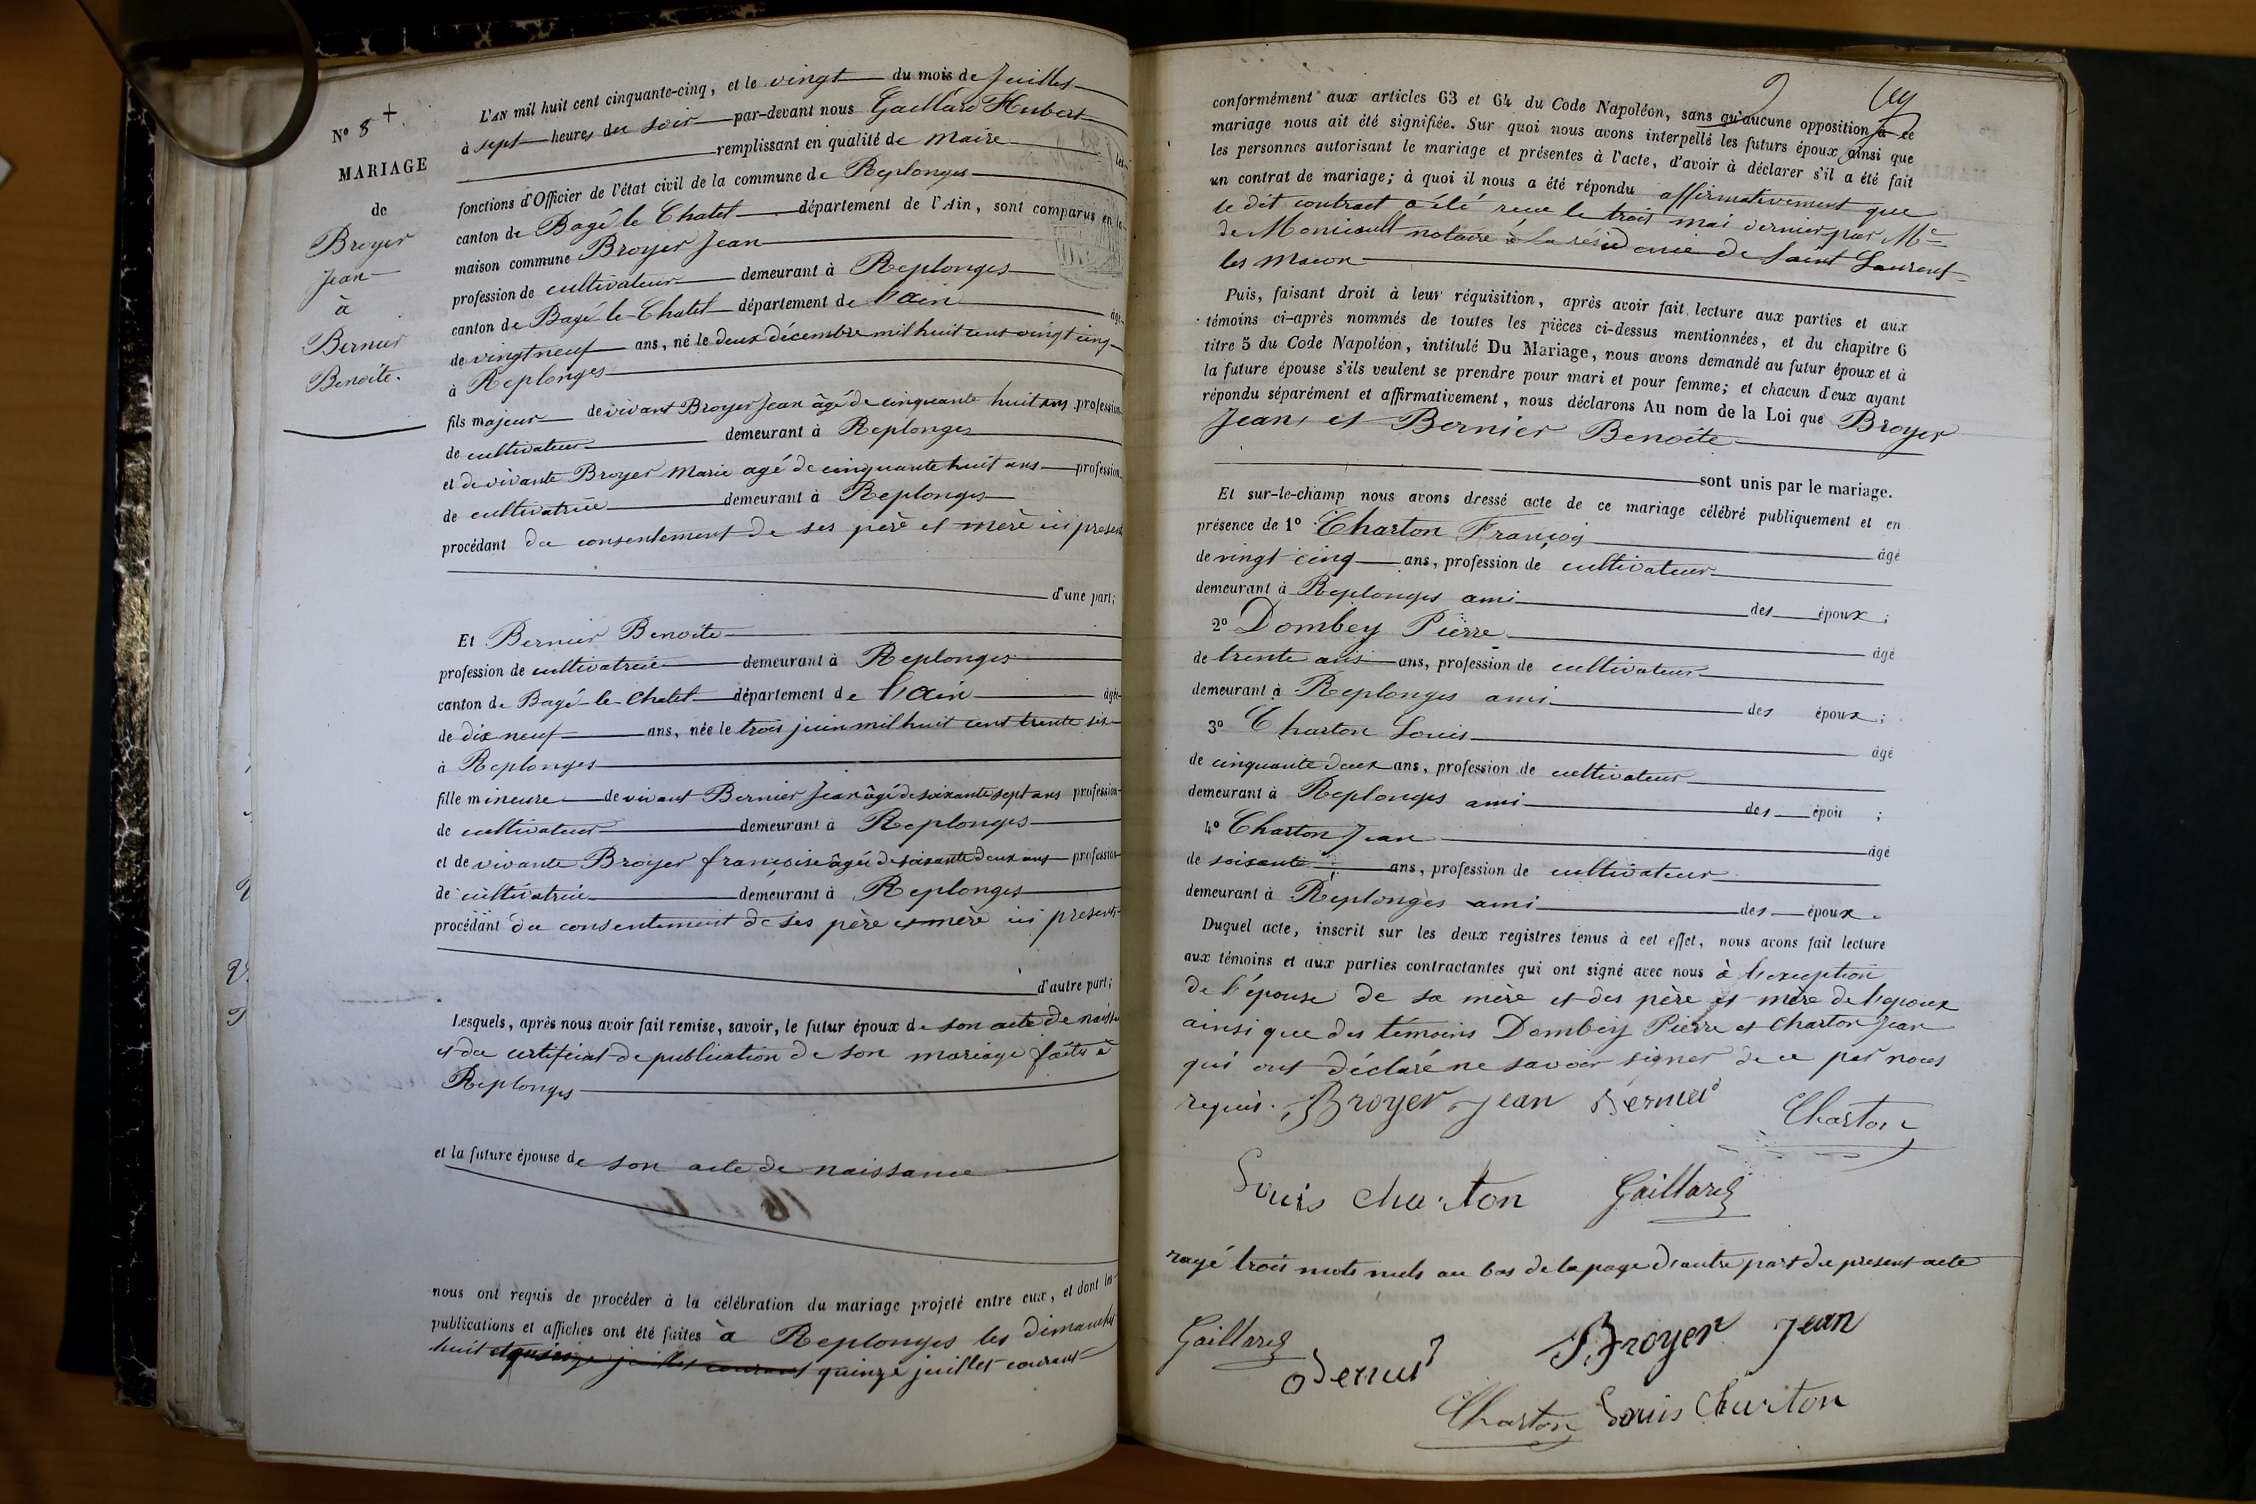 N° 8 +
MARIAGE
de
Broyer
Jean
à
Bernier
Benoîte.
L'AN mil huit cent cinquante-cinq, et le vingt du mois de Juillet
à sept heures du soir par-devant nous Gaillard Hubert
remplissant en qualité de maire les
fonctions d'Officier de l'état civil de la commune de Replonges
canton de Bagé le Chatel département de l'Ain, sont comparus en la
maison commune Broyer Jean
profession de cultivateur demeurant à Replonges
canton de Bagé-le-Chatel département de l'ain âgé
de vingt neuf ans, né le deux décembre mil huit cent vingt cinq
à Replonges
fils majeur de vivant Broyer Jean âgé de cinquante huit ans profession
de cultivateur demeurant à Replonges
et de vivante Broyer Marie agé de cinquante huit ans profession
de cultivatrice demeurant à Replonges
procédant du consentement de ses père et mère ici présent
d'une part;
Et Bernier Benoîte
profession de cultivatrice demeurant à Replonges
canton de Bagé-le-Chatel département de l'ain âgée
de dix neuf ans, née le trois juin mil huit cent trente six
à Replonges
fille mineure de vivant Bernier Jean âgé de soixante sept ans profession
de cultivateur demeurant à Replonges
et de vivante Broyer françoise âgée de soixante deux ans profession
de cultivatrice demeurant à Replonges
procédant du consentement de ses père et mère ici présents
d'autre part;
Lesquels, après nous avoir fait remise, savoir, le futur époux de son acte de naiss
et du certificat de publication de son mariage faite à
Replonges
et la future épouse de son acte de naissance
nous ont requis de procéder à la célébration du mariage projeté entre eux, et dont les
publications et affiches ont été faites à Replonges les dimanches
huit et quinze juillet courant quinze juillet courant
9
conformément aux articles 63 et 64 du Code Napoléon, sans qu'aucune opposition à ce
mariage nous ait été signifiée. Sur quoi nous avons interpellé les futurs époux ainsi que
les personnes autorisant le mariage et présentes à l'acte, d'avoir à déclarer s'il a été fait
un contrat de mariage; à quoi il nous a été répondu affirmativement que
le dit contract a été reçu le trois mai dernier par Me
de notaire à la résidence de Saint Laurent
les macon
Puis, faisant droit à leur réquisition, après avoir fait lecture aux parties et aux
témoins ci-après nommés de toutes les pièces ci-dessus mentionnées, et du chapitre 6
titre 5 du Code Napoléon, intitulé Du Mariage, nous avons demandé au futur époux et à
la future épouse s'ils veulent se prendre pour mari et pour femme; et chacun d'eux ayant
répondu séparément et affirmativement, nous déclarons Au nom de la Loi que Broyer
Jean, et Bernier Benoite
sont unis par le mariage.
Et sur-le-champ nous avons dressé acte de ce mariage célébré publiquement et en
présence de 1° Charton François âgé
de vingt cinq ans, profession de cultivateur
demeurant à Replonges ami des époux;
2° Dombey Pierre âgé
de trente ans ans, profession de cultivateur
demeurant à Replonges ami des époux;
3° Charton Louis âgé
de cinquante deux ans, profession de cultivateur
demeurant à Replonges ami des épou ;
4° Charton Jean âgé
de soixante ans, profession de cultivateur
demeurant à Replonges ami des époux.
Duquel acte, inscrit sur les deux registres tenus à cet effet, nous avons fait lecture
aux témoins et aux parties contractantes qui ont signé avec nous à l'exception
de l'épouse de sa mère et des père et mère de l'epoux
ainsi que des témoins Dombey Pierre et Charton Jean
qui ont déclaré ne savoir signer de ce par nous
requis. Broyer Jean Bernier Charton
Louis Charton Gaillard
rayé trois mots nuls au bas de la page d'autre part du présent acte
Gaillard Bernier Broyer Jean
Charton Louis Charton